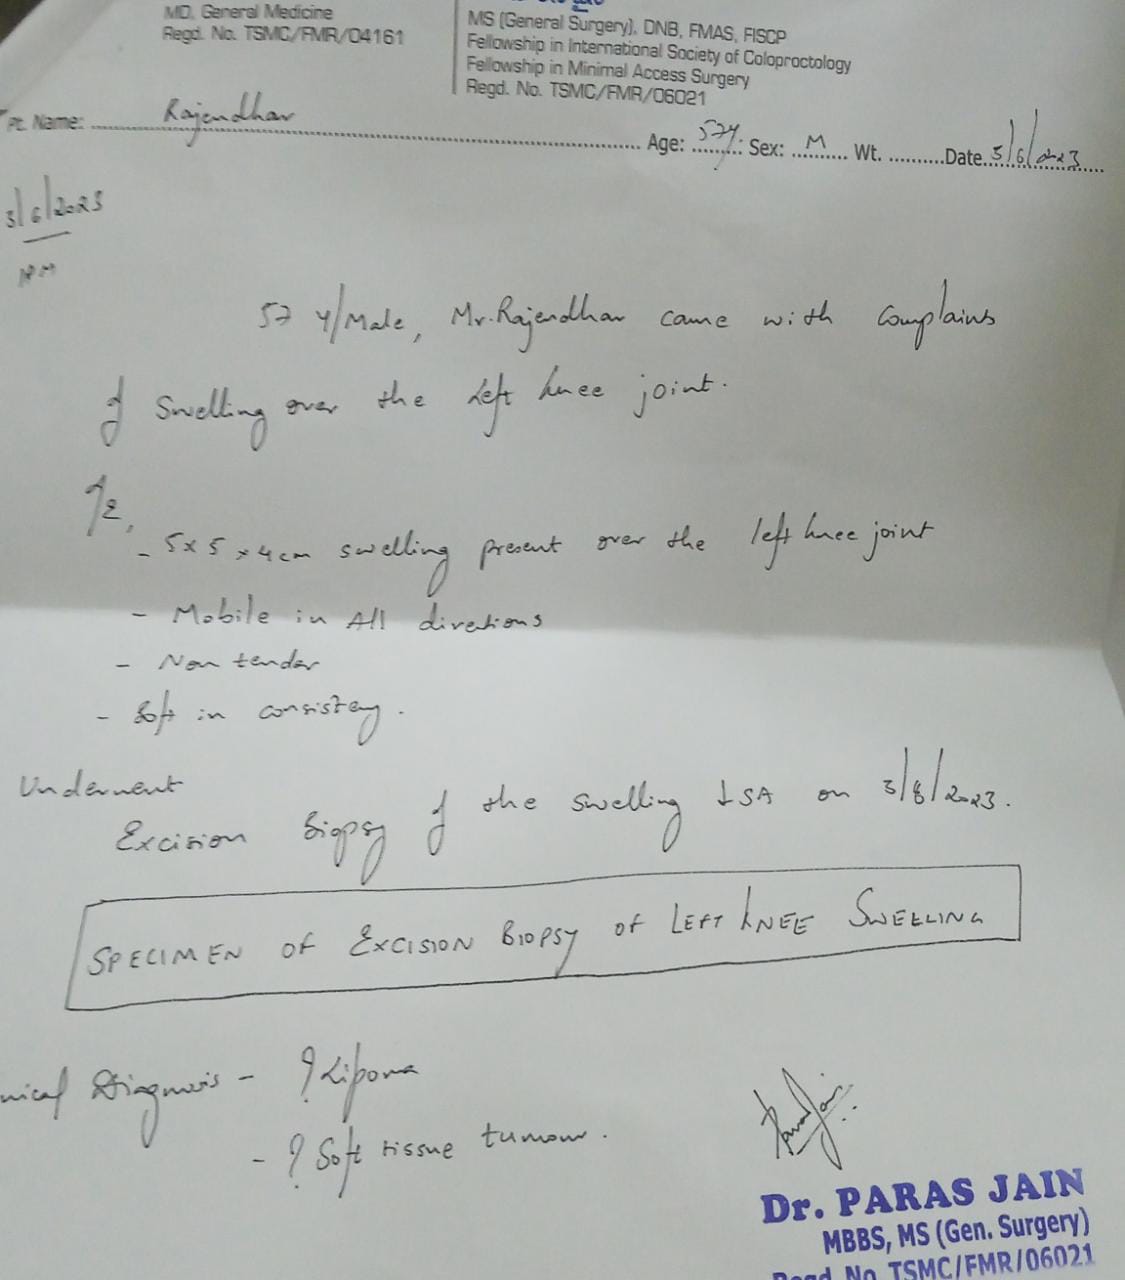 MD. General Medicine
Regd. No. TSMC/FMR/04161
MS (General Surgery), DNB, FMAS, FISCP
Fellowship in International Society of Coloproctology
Fellowship in Minimal Access Surgery
Regd. No. TSMC/FMR/06021
Pt. Name: Rajendhar Age: 57y Sex: M Wt. Date 3/6/2023
3/6/2023
57 Y/Male, Mr. Rajendhar came with Complains
of Swelling over the Left knee joint.
- 5x5x4cm swelling present over the left knee joint
- Mobile in All directions
- Non tender
- Soft in consistency.
Underwent
Excision Biopsy of the swelling ↓SA on 3/6/2023.
SPECIMEN OF EXCISION BIOPSY OF LEFT KNEE SWELLING
nical Diagnosis - ? Lipoma
- ? Soft tissue tumour.
Dr. PARAS JAIN
MBBS, MS (Gen. Surgery)
Regd. No. TSMC/FMR/06021